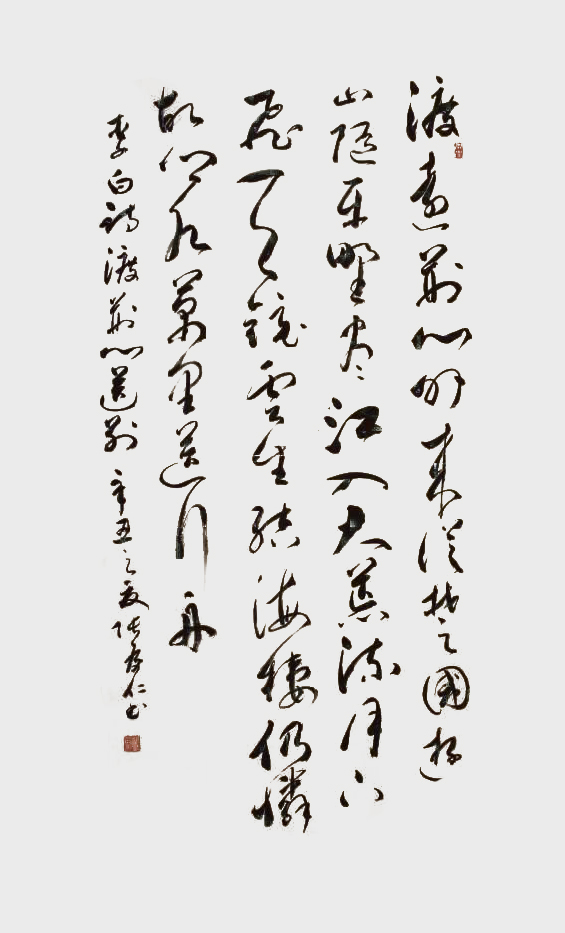 渡遠荊門外來從楚國遊
山隨平野尽江入大荒流月下
飛天鏡雲生結海樓仍憐
故鄉水萬里送行舟
李白詩渡荊門送別 辛丑之夏張仁書